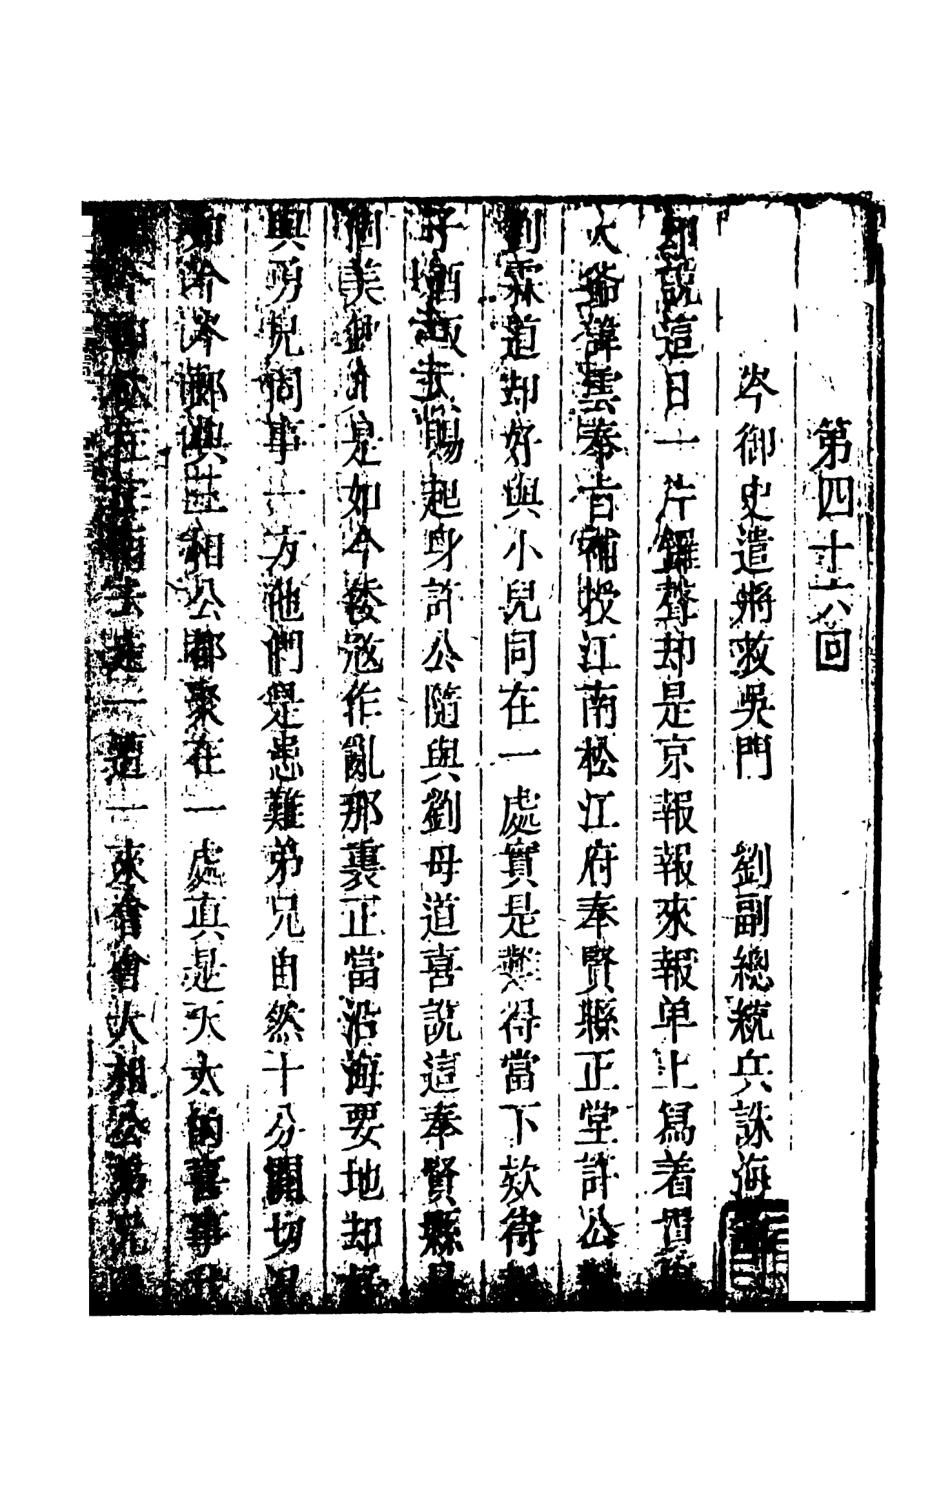 第四十六回
岑御史遣將救吳門　劉副總統兵誅海
却說這日一片鑼聲却是京報報來報单上寫着
大爺諱雲奉旨補授江南松江府奉賢縣正堂許公
劉霖道却好與小兒同在一處實是難得當下欵待
子酒飯去賜起身許公隨與劉母道喜說這奉賢縣是
個美缺只是如今倭寇作亂那裏正當沿海要地却好
與勇兒同事一方他們是患難弟兄自然十分關切
如今岑郎與王相公都聚在一處真是天大的喜事我
去走一遭一來會會大相公弟兄